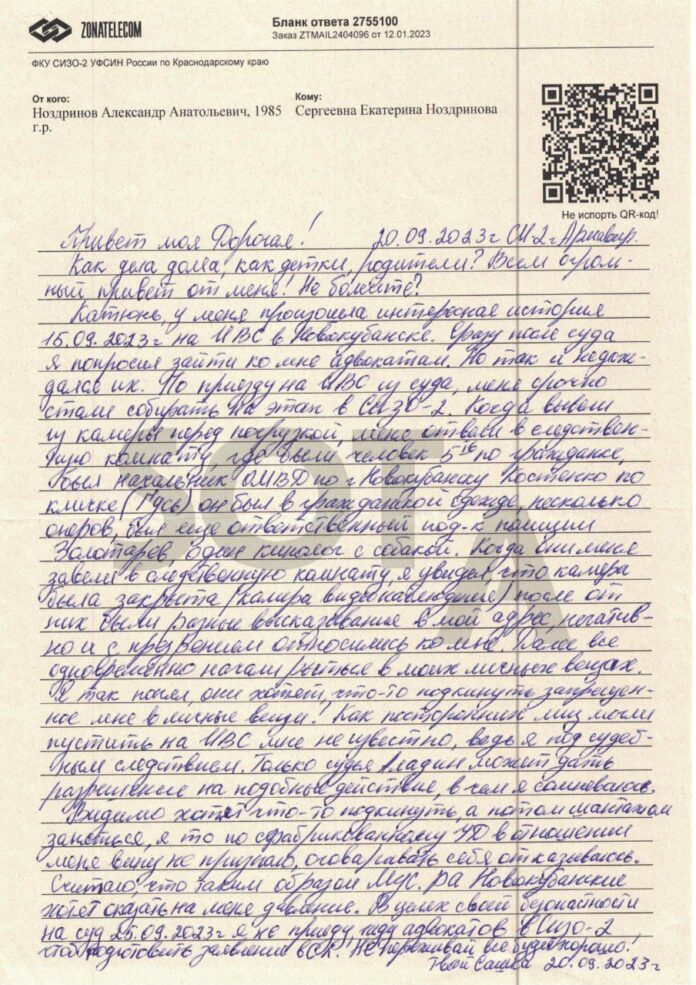 ZONATELECOM
Бланк ответа 2755100
Заказ ZTMAIL2404096 от 12.01.2023
ФКУ СИЗО-2 УФСИН России по Краснодарскому краю
От кого:
Ноздринов Александр Анатольевич, 1985
г.р.
Кому:
Сергеевна Екатерина Ноздринова
Не испорть QR-код!
Привет моя Дорогая! 20.09.2023г СИ-2 г Армавир.
Как дела дома, как детки, родители? Всем огром-
ный привет от меня! Не болеете?
Катюнь, у меня произошла интересная история
15.09.2023г на ИВС в Новокубанске. Сразу после суда
я попросил зайти ко мне адвокатам. Но так и недож-
дался их. По приезду на ИВС из суда, меня срочно
стали собирать на этап в СИЗО-2. Когда вывели
из камеры перед погрузкой, меня отвели в следствен-
ную комнату, где были человек 5 по гражданке,
был начальник ОМВД по г Новокубанску Костенко по
кличке (Гусь) он был в гражданской одежде, несколько
оперов, был еще ответственный под-к полиции
Золотарёв, один кинолог с собакой. Когда они меня
завели в следственную комнату, я увидел, что камера
была закрыта (камера видеонаблюдения) после от
них были разные высказывания в мой адрес, негатив-
но и с презрением относились ко мне. Далее все
одновременно начали рыться в моих личных вещах.
Я так понял, они хотят, что-то подкинуть запрещен-
ное мне в личные вещи! Как посторонних лиц могли
пустить на ИВС мне не известно, ведь я под судеб-
ным следствием. Только судья может дать
разрешение на подобные действие, в чем я сомневаюсь.
Видимо хотят что-то подкинуть, а потом шантажом
заняться, я то по сфабрикованному УД в отношении
меня вину не признаю, оговаривать себя отказываюсь.
Считаю, что таким образом Мус.ра Новокубанские
хотят оказать на меня давление. В целях своей безопасности
на суд 25.09.2023г я не приеду жду адвокатов в Сизо-2
чтоб подготовить заявление в СК. Не переживай все будет хорошо!
Твой Сашка 20.09.2023г
ЗОТА